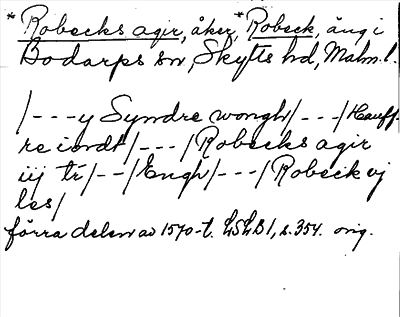 *Robecks agir, åker, *Robeck, äng i
Bodarps sn, Skytts hd, Malm.l.
/---y Syndre wongh/---/Hauff-
re iordt/---/Robecks agir
iij tr/--/Engh/---/Robeck vj
les/
förra delen av 1570-t. LSLB1, s. 354. orig.